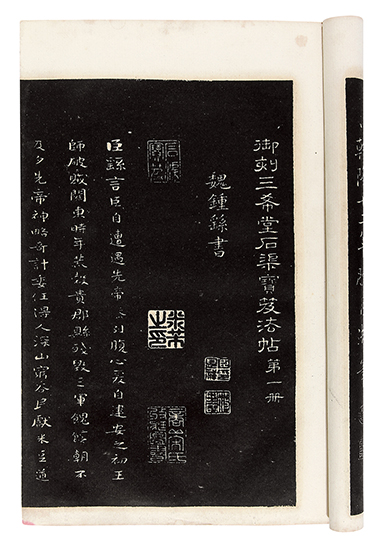 御刻三希堂石渠寶笈法帖第一冊
魏鍾繇書
臣繇言臣自遭遇先帝忝列腹心爰自建安之初王
師破賊關東時年荒穀貴郡縣殘毀三軍餽饟朝不
及夕先帝神略奇計委任得人深山窮谷民獻米豆道